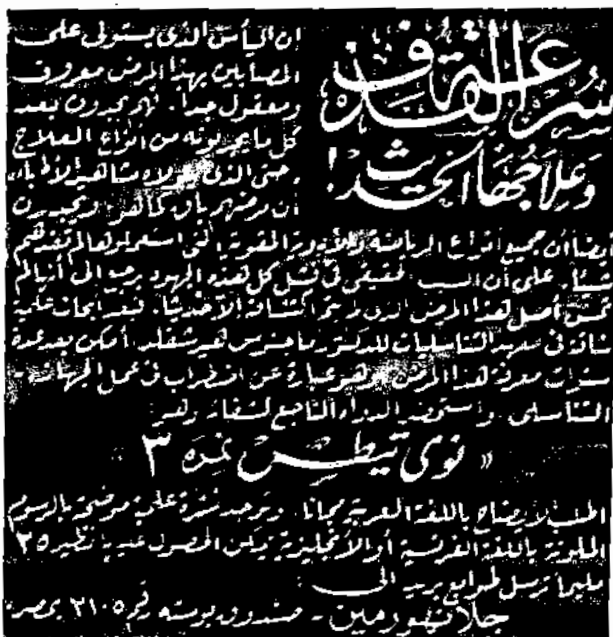 سُرعَة القَذف
وَعِلاجُها الحَديث!
ان اليأس الذى يستولى على
المصابين بهذا المرض معروف
ومعقول جدا. فهم يجدون بعد
كل ما يجربونه من انواع العلاج
وحتى الذى مشاهير الأطباء
أن مرضهم باق كما هو ويجدون
ايضا أن جميع أنواع الرياضة والأدوية المقوية التى استعملوها لم تفدهم
شيئا. على أن السبب الحقيقى فى فشل كل هذه الجهود يرجع الى أنها لم
أصل هذا المرض الذى لم يتم اكتشافه الا حديثا. فبعد ابحاث علمية
شاقة فى معهد التناسليات للدكتور ماجنوس هيرشفلد أمكن بعد عدة
سنوات معرفة هذا المرض وهو عبارة عن اضطراب فى عمل الجهاز
التناسلى. واستحضر الدواء الناجع لشفائه وهو:
« نوى تيطس نمرة ٣ »
اطلب الايضاح باللغة العربية مجانا. وتوجد نشرة علمية موضحة بالرسوم
الملونة باللغة الفرنسية أو الأنجليزية يمكن الحصول عليها نظير ٢٥
مليما ترسل طوابع بريد الى:
جلانهورمين - صندوق بوسته رقم ٢١٠٥ بمصر